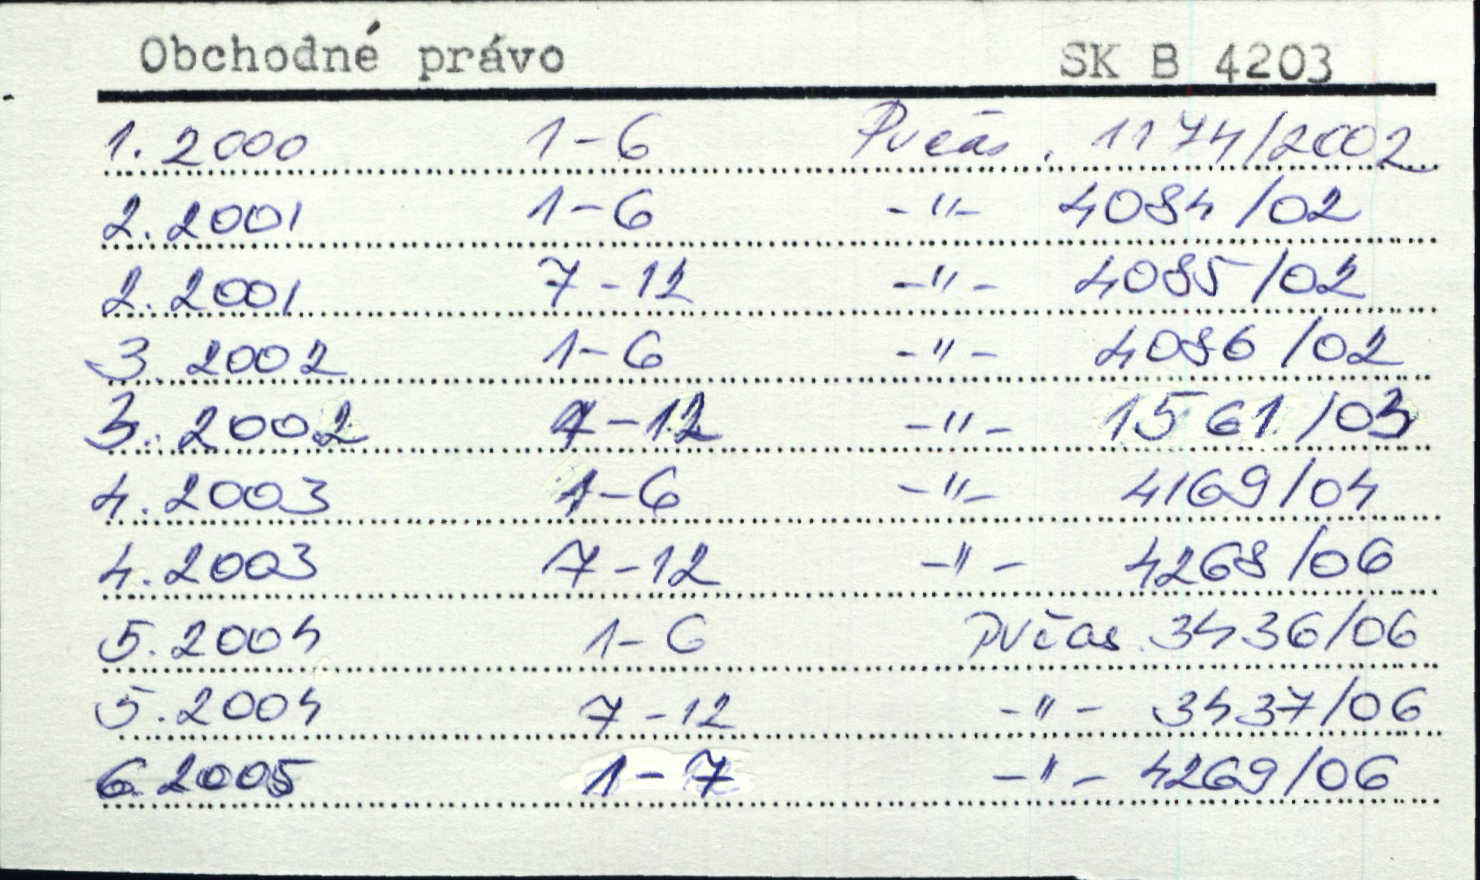 Obchodné právo SK B 4203
1. 2000 1-6 PVčas. 1174/2002
2. 2001 1-6 -"- 4084/02
2. 2001 7-12 -"- 4085/02
3. 2002 1-6 -"- 4086/02
3. 2002 7-12 -"- 1561/03
4. 2003 1-6 -"- 4169/04
4. 2003 7-12 -"- 4268/06
5. 2004 1-6 PVčas. 3436/06
5. 2004 7-12 -"- 3437/06
6 2005 1-7 -"- 4269/06